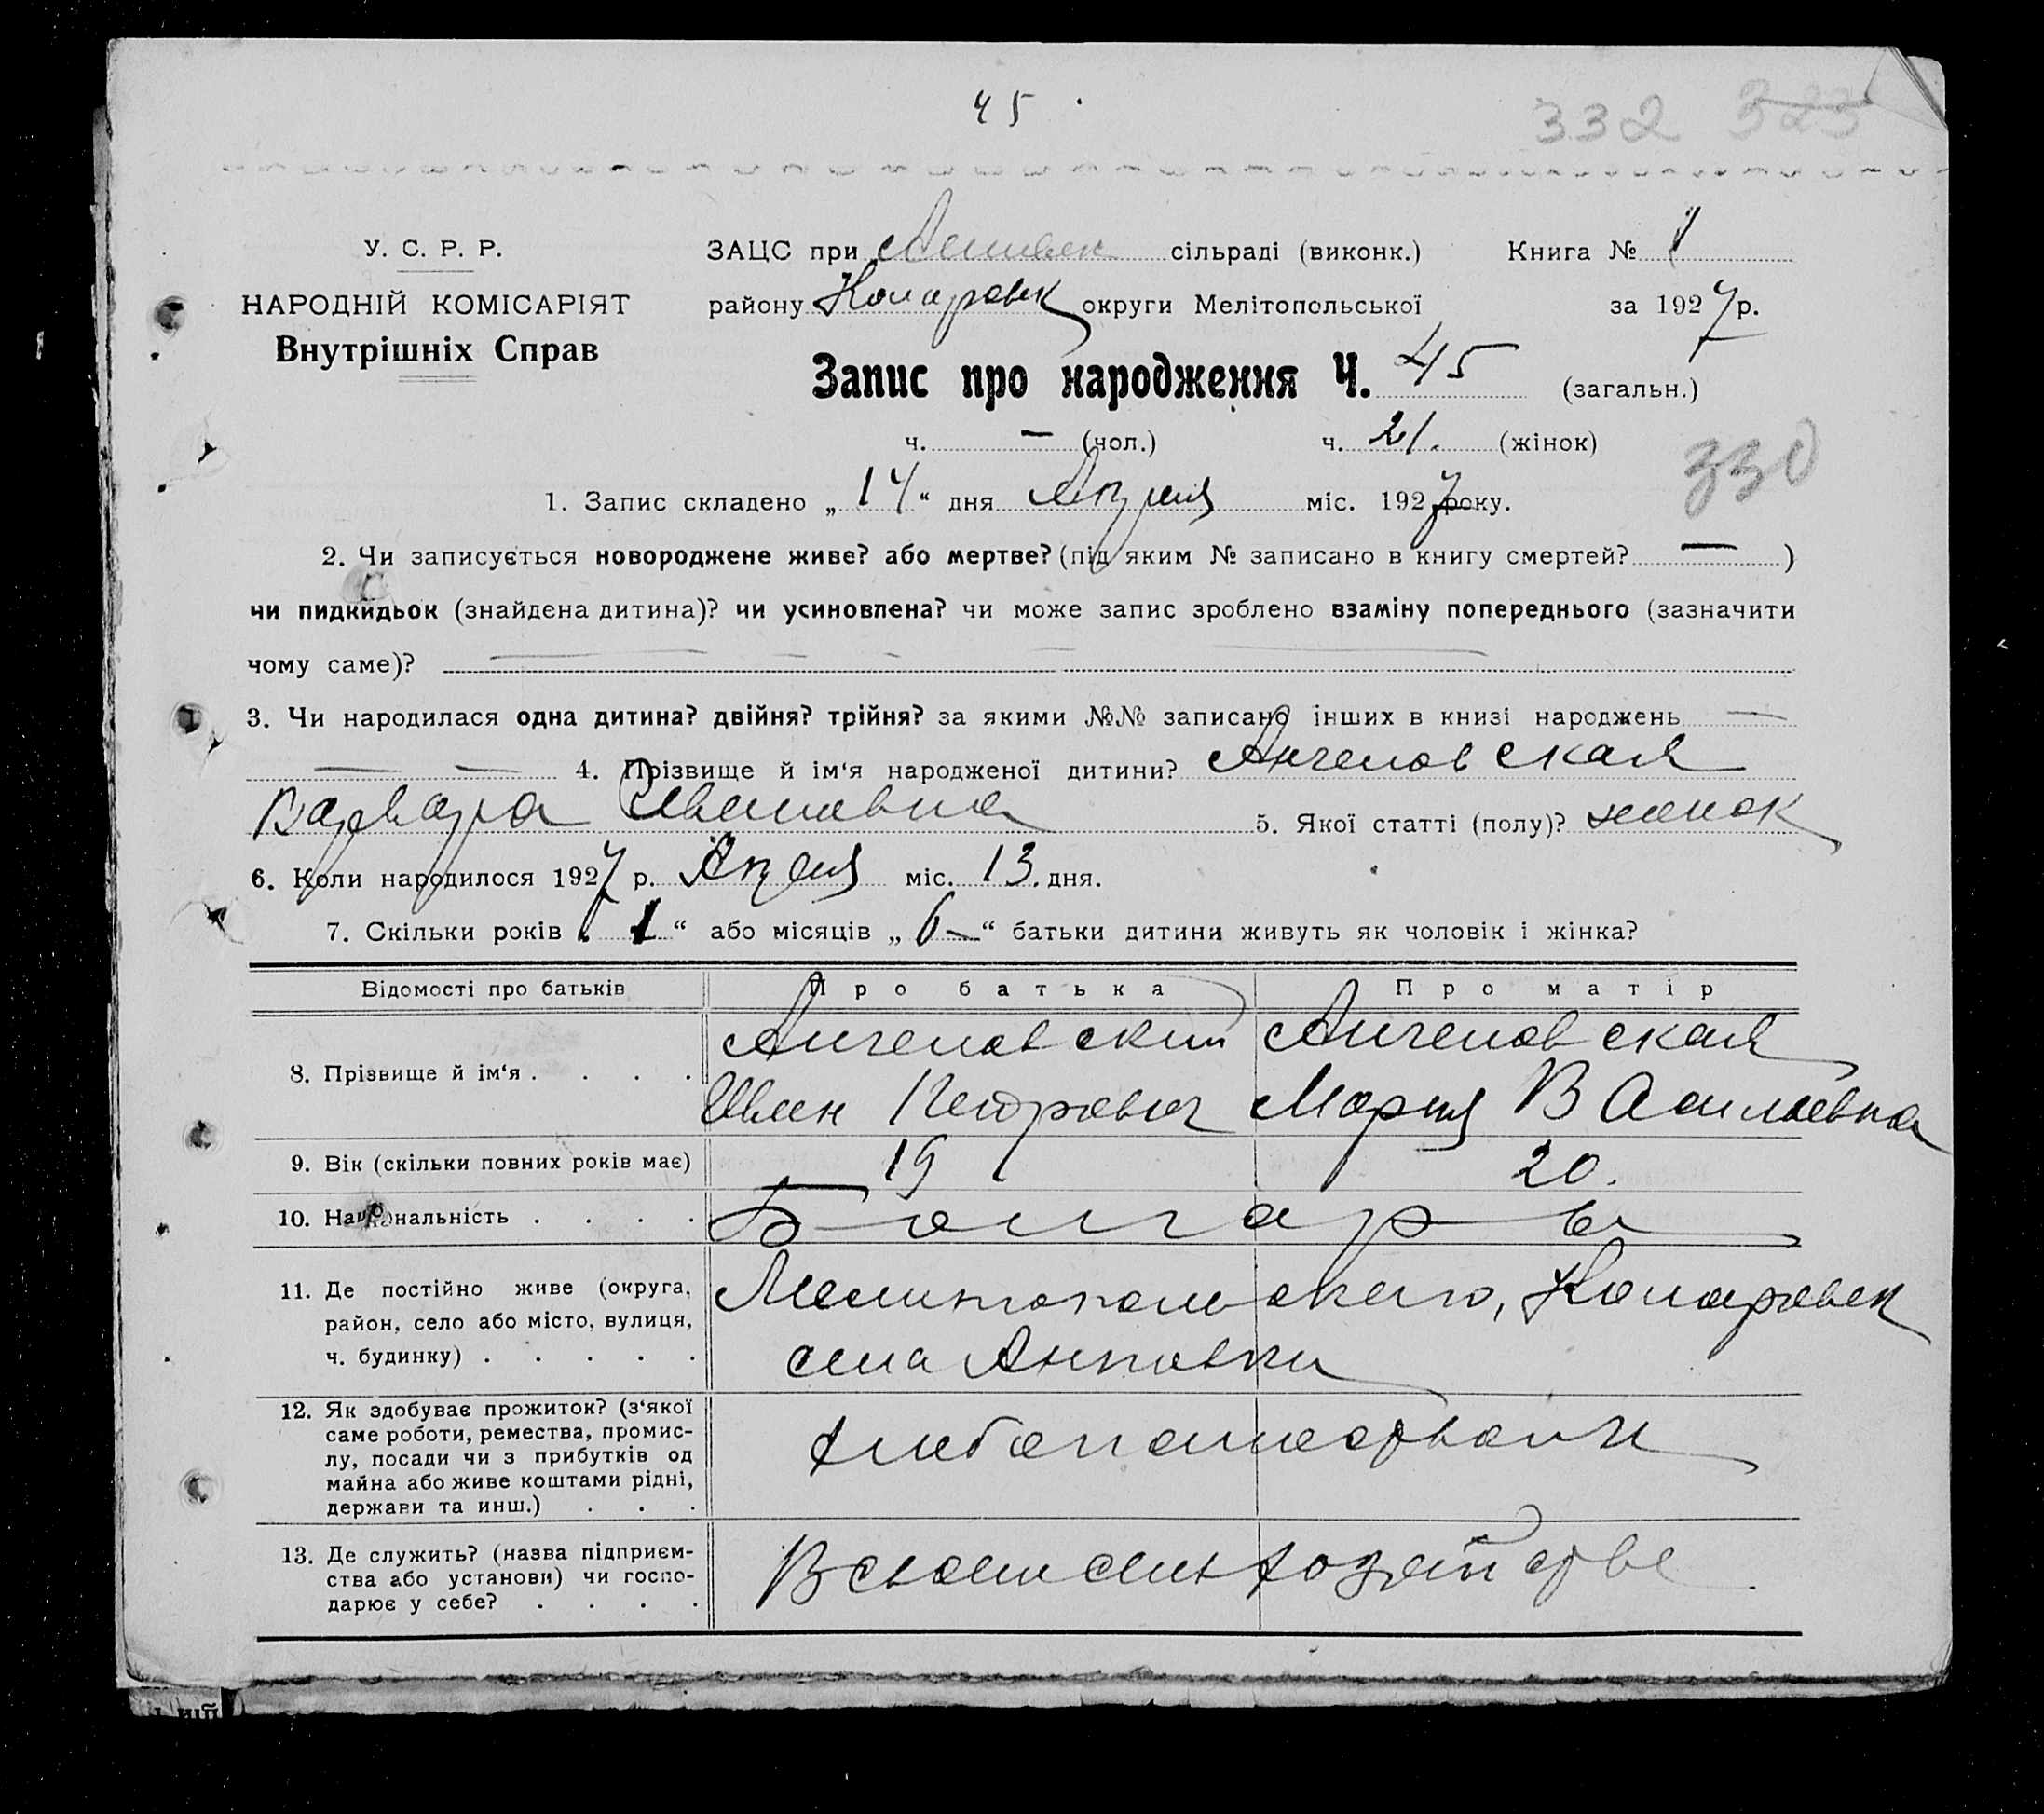 45
332 323
У. С. Р. Р.
ЗАЦС при сільраді (виконк.) Книга № 1
НАРОДНІЙ КОМІСАРІЯТ
району Комаровск округи Мелітопольської за 1927 р.
Внутрішніх Справ
Запис про народження Ч. 45 (загальн.)
ч. — (чол.) ч. 21. (жінок)
330
1. Запис складено „14“ дня Апреля міс. 1927 року.
2. Чи записується новороджене живе? або мертве? (під яким № записано в книгу смертей? — )
чи пидкидьок (знайдена дитина)? чи усиновлена? чи може запис зроблено взаміну попереднього (зазначити
чому саме)?
3. Чи народилася одна дитина? двійня? трійня? за якими №№ записано інших в книзі народжень —
— — 4. Прізвище й ім‘я народженої дитини? Ангеловская
Варвара Ивановна 5. Якої статті (полу)? женск
6. Коли народилося 1927 р. Апреля міс. 13. дня.
7. Скільки років „1“ або місяців „6—“ батьки дитини живуть як чоловік і жінка?
Відомості про батьків Про батька Про матір
8. Прізвище й ім‘я . . . . Ангеловский Ангеловская
Иван Петрович Мария Васильевна
9. Вік (скільки повних років має) 19 20.
10. Національність . . . . Болгары
11. Де постійно живе (округа, район, село або місто, вулиця, ч. будинку) . . . . . Мелитопольского, Комаровск
села Анновки
12. Як здобуває прожиток? (з‘якої
саме роботи, ремества, промис-
лу, посади чи з прибутків од
майна або живе коштами рідні,
держави та инш.) . . . хлебопашеством
13. Де служить? (назва підприєм-
ства або установи) чи госпо-
дарює у себе? . . . . В своем сельхозяйстве.